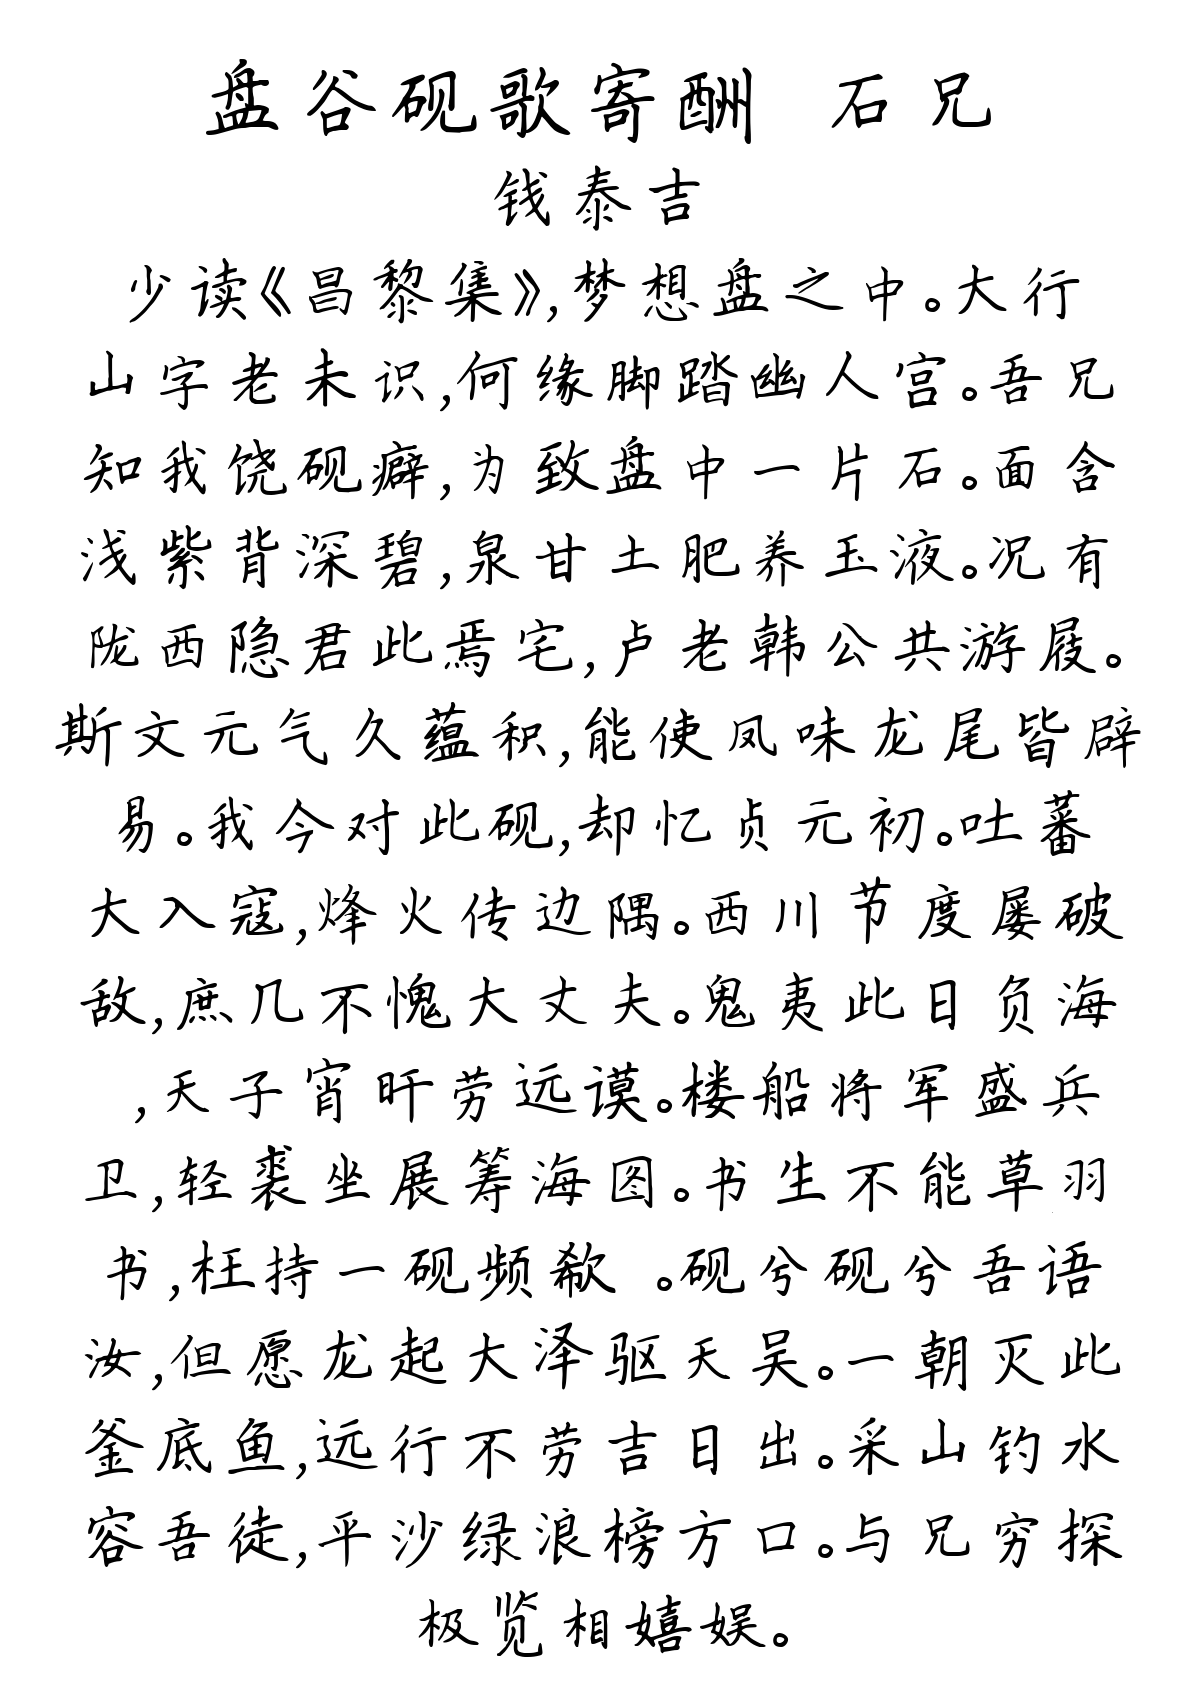 盘谷砚歌寄酬 石兄
钱泰吉
少读《昌黎集》,梦想盘之中。大行
山字老未识,何缘脚踏幽人宫。吾兄
知我饶砚癖,为致盘中一片石。面含
浅紫背深碧,泉甘土肥养玉液。况有
陇西隐君此焉宅,卢老韩公共游屐。
斯文元气久蕴积,能使凤味龙尾皆辟
易。我今对此砚,却忆贞元初。吐蕃
大入寇,烽火传边隅。西川节度屡破
敌,庶几不愧大丈夫。鬼夷此日负海
,天子宵旰劳远谟。楼船将军盛兵
卫,轻裘坐展筹海图。书生不能草羽
书,枉持一砚频欷 。砚兮砚兮吾语
汝,但愿龙起大泽驱天吴。一朝灭此
釜底鱼,远行不劳吉日出。采山钓水
容吾徒,平沙绿浪榜方口。与兄穷探
极览相嬉娱。